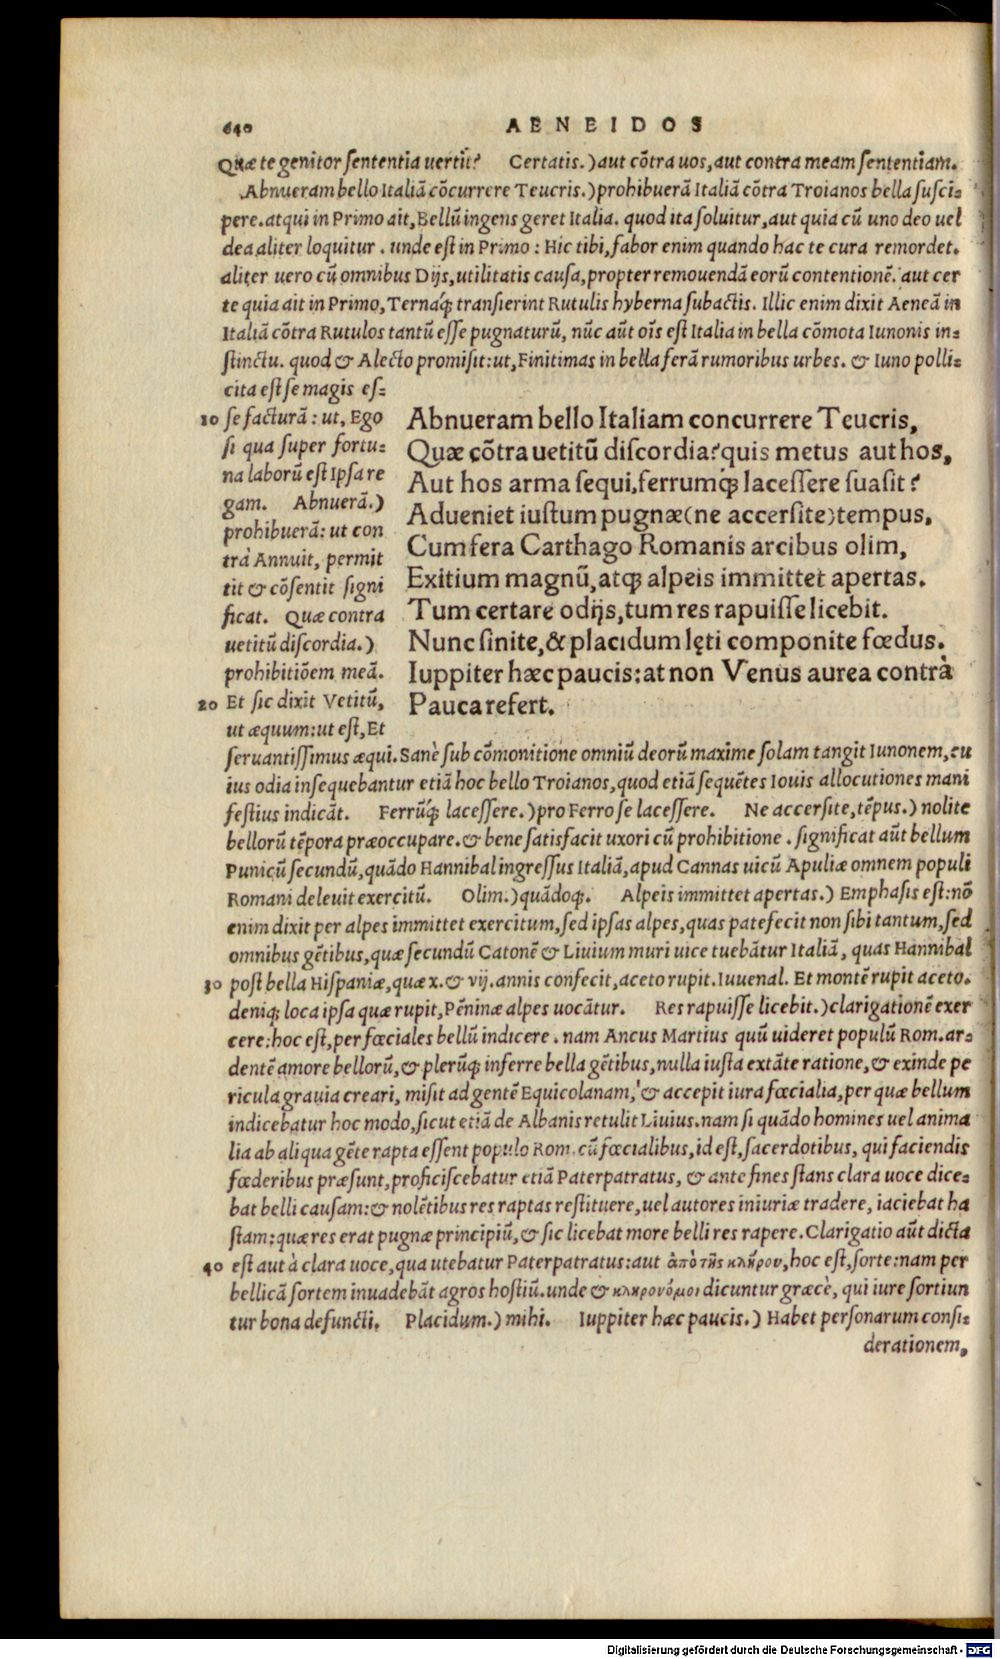 640 AENEIDOS
Quæ te genitor sententia uertit? Certatis.) aut cõtra uos, aut contra meam sententiam.
Abnueram bello Italiã cõcurrere Teucris.) prohibuerã Italiã cõtra Troianos bella susci=
pere. atqui in Primo ait, Bellũ ingens geret Italia. quod ita soluitur, aut quia cũ uno deo uel
dea aliter loquitur. unde est in Primo: Hic tibi, fabor enim quando hac te cura remordet.
aliter uero cũ omnibus Dijs, utilitatis causa, propter remouendã eorũ contentionẽ. aut cer
te quia ait in Primo, Ternaq́; transierint Rutulis hyberna subactis. Illic enim dixit Aeneã in
Italiã cõtra Rutulos tantũ esse pugnaturũ, nũc aũt oĩs est Italia in bella cõmota Iunonis in=
stinctu. quod & Alecto promisit: ut, Finitimas in bella ferã rumoribus urbes. & Iuno polli=
cita est se magis es=
10 se facturã: ut, Ego
si qua super fortu=
na laborũ est Ipsa re
gam. Abnuerã.)
prohibuerã: ut con
trà Annuit, permit
tit & cõsentit signi
ficat. Quæ contra
uetitũ discordia.)
prohibitiõem meã.
20 Et sic dixit Vetitũ,
ut æquum: ut est, Et
Abnueram bello Italiam concurrere Teucris,
Quæ cõtra uetitũ discordia? quis metus aut hos,
Aut hos arma sequi, ferrumq́; lacessere suasit?
Adueniet iustum pugnæ (ne accersite) tempus,
Cum fera Carthago Romanis arcibus olim,
Exitium magnũ, atq; alpeis immittet apertas.
Tum certare odijs, tum res rapuisse licebit.
Nunc sinite, & placidum lęti componite fœdus.
Iuppiter hæc paucis: at non Venus aurea contrà
Pauca refert.
seruantissimus æqui. Sanè sub cõmonitione omniũ deorũ maxime solam tangit Iunonem, cu
ius odia insequebantur etiã hoc bello Troianos, quod etiã sequẽtes Iouis allocutiones mani
festius indicãt. Ferrũq́; lacessere.) pro Ferro se lacessere. Ne accersite, tẽpus.) nolite
bellorũ tẽpora præoccupare. & bene satisfacit uxori cũ prohibitione. significat aũt bellum
Punicũ secundũ, quãdo Hannibal ingressus Italiã, apud Cannas uicũ Apuliæ omnem populi
Romani deleuit exercitũ. Olim.) quãdoq;. Alpeis immittet apertas.) Emphasis est: nõ
enim dixit per alpes immittet exercitum, sed ipsas alpes, quas patefecit non sibi tantum, sed
omnibus gẽtibus, quæ secundũ Catonẽ & Liuium muri uice tuebãtur Italiã, quas Hannibal
30 post bella Hispaniæ, quæ x. & vij. annis confecit, aceto rupit. Iuuenal. Et montẽ rupit aceto.
deniq; loca ipsa quæ rupit, Pẽninæ alpes uocãtur. Res rapuisse licebit.) clarigationẽ exer
cere: hoc est, per fœciales bellũ indicere. nam Ancus Martius quũ uideret populũ Rom. ar=
dentẽ amore bellorũ, & plerũq; inferre bella gẽtibus, nulla iusta extãte ratione, & exinde pe
ricula grauia creari, misit ad gentẽ Equicolanam, & accepit iura fœcialia, per quæ bellum
indicebatur hoc modo, sicut etiã de Albanis retulit Liuius. nam si quãdo homines uel anima
lia ab aliqua gẽte rapta essent populo Rom. cũ fœcialibus, id est, sacerdotibus, qui faciendis
fœderibus præsunt, proficiscebatur etiã Paterpatratus, & ante fines stans clara uoce dice=
bat belli causam: & nolẽtibus res raptas restituere, uel autores iniuriæ tradere, iaciebat ha
stam: quæ res erat pugnæ principiũ, & sic licebat more belli res rapere. Clarigatio aũt dicta
40 est aut à clara uoce, qua utebatur Paterpatratus: aut ἀπὸ τῆς κλήρου, hoc est, sorte: nam per
bellicã sortem inuadebãt agros hostiũ. unde & κληρονόμοι dicuntur græcè, qui iure sortiun
tur bona defuncti. Placidum.) mihi. Iuppiter hæc paucis.) Habet personarum consi=
derationem,
Digitalisierung gefördert durch die Deutsche Forschungsgemeinschaft - DFG